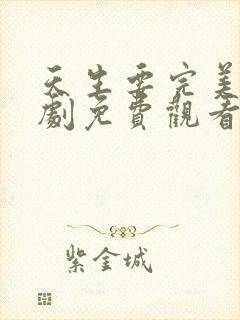 天生要完美
劇免費觀看
紫金城